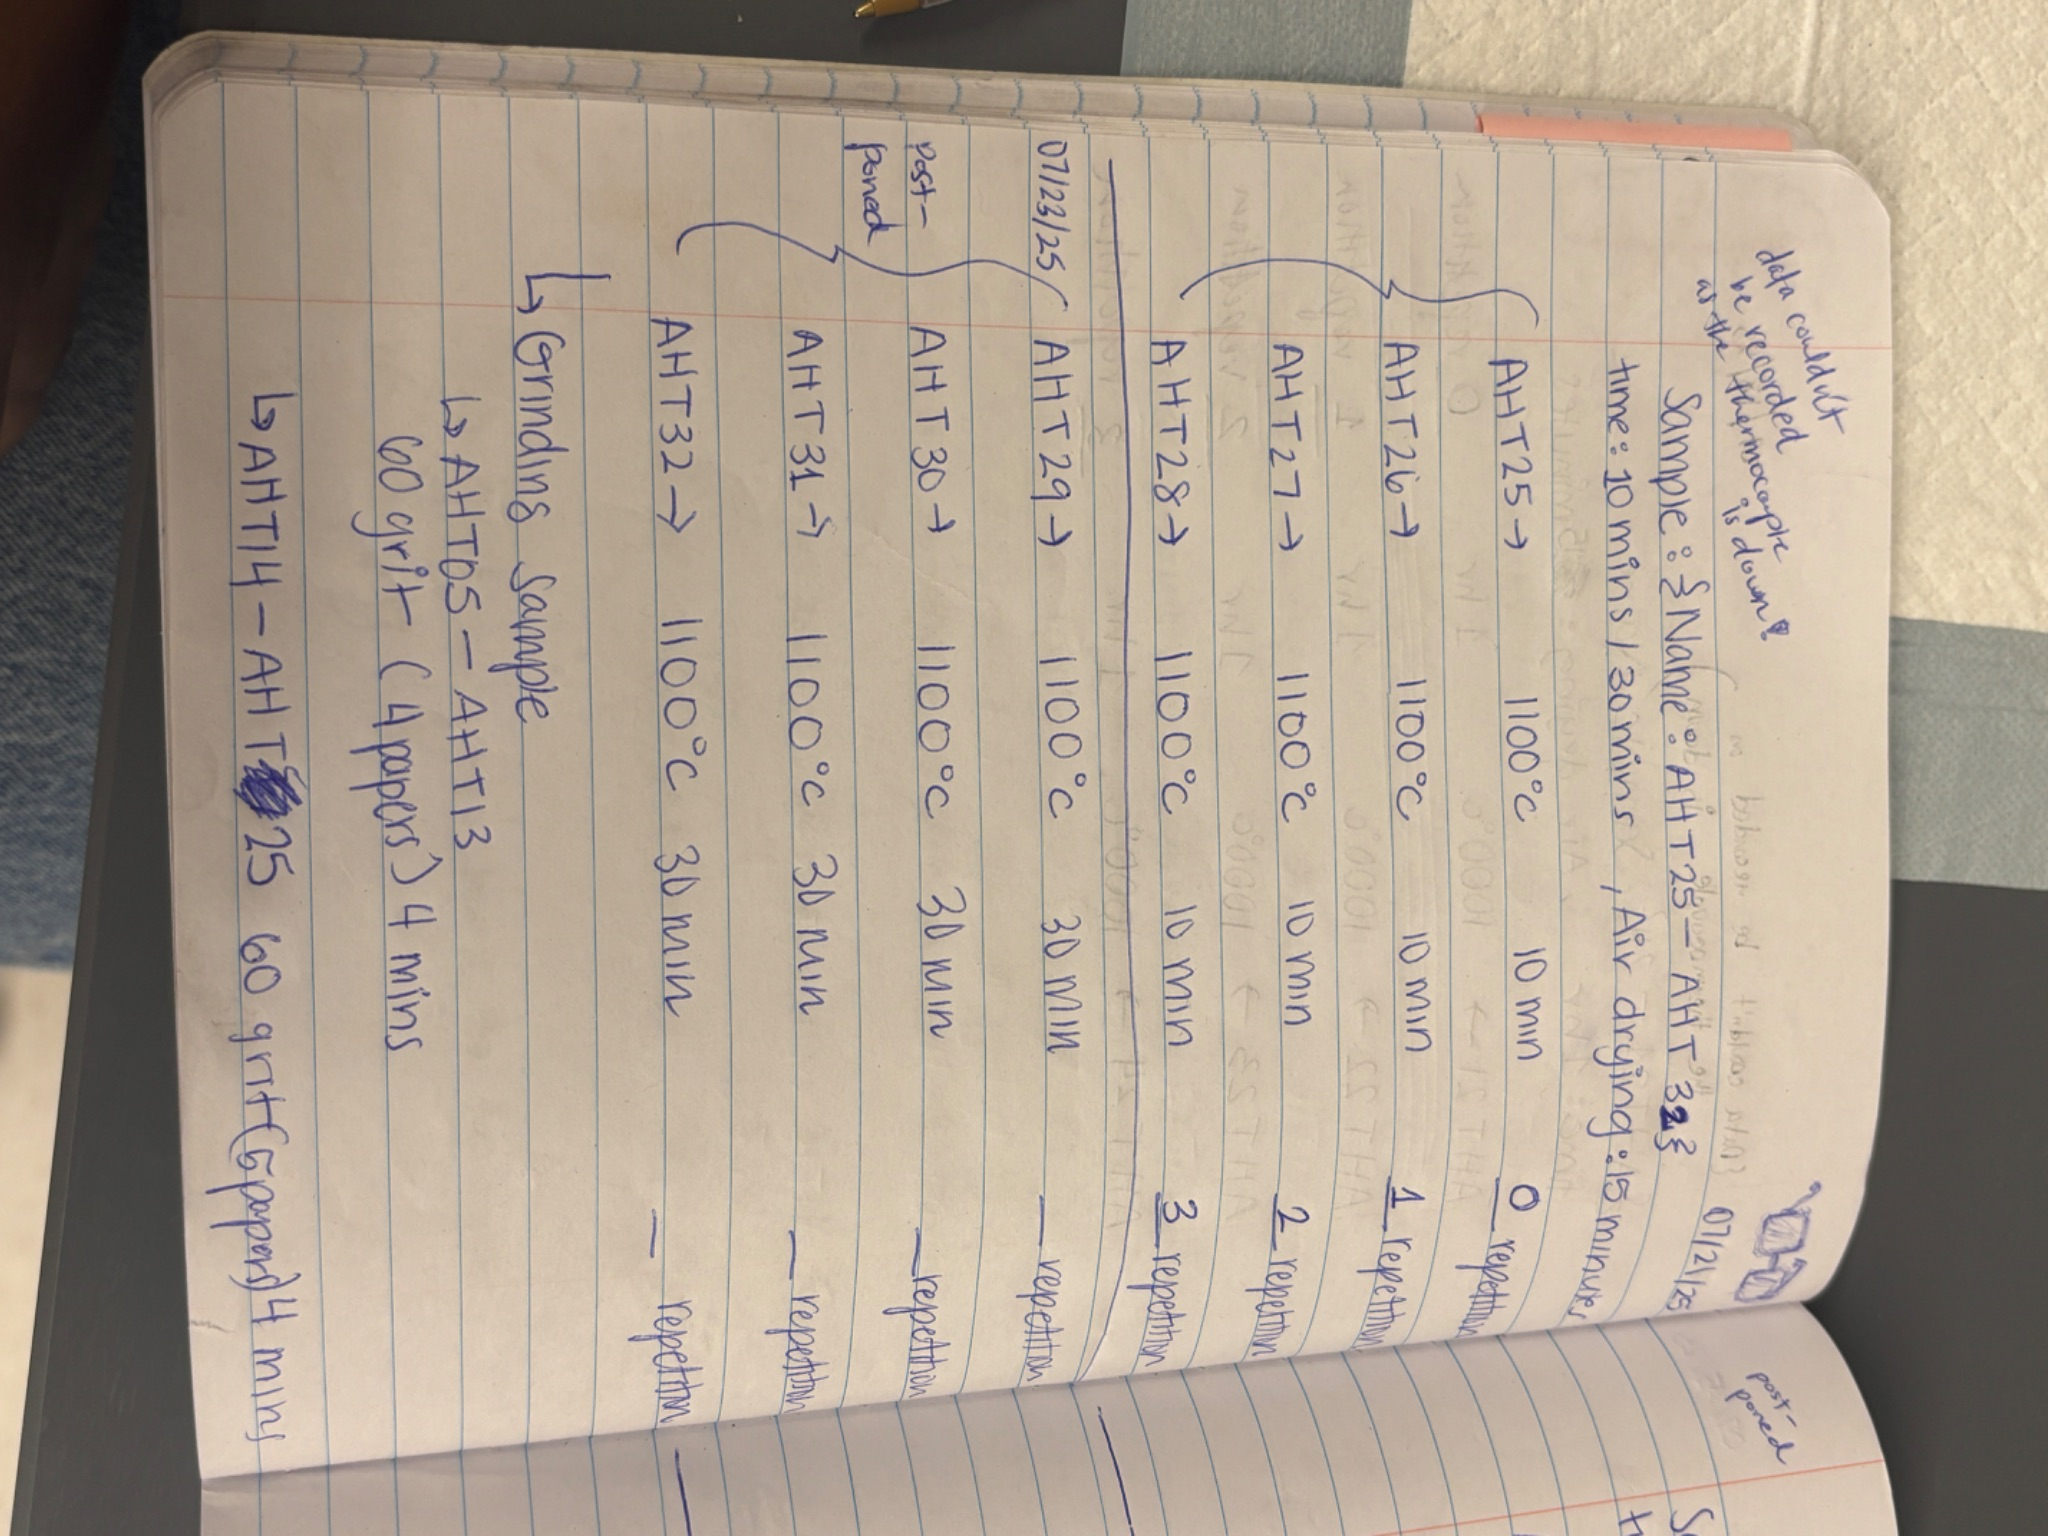 07/21/25
data couldn't
be recorded
as the thermocouple
is down?
Sample: {Name: AHT25 - AHT32}
time: 10 mins / 30 mins, Air drying: 15 minutes
AHT25 → 1100°C 10 min 0 repetition
AHT26 → 1100°C 10 min 1 repetition
AHT27 → 1100°C 10 min 2 repetition
AHT28 → 1100°C 10 min 3 repetition
07/23/25 AHT29 → 1100°C 30 min _ repetition
post-
poned
AHT30 → 1100°C 30 min _ repetition
AHT31 → 1100°C 30 min _ repetition
AHT32 → 1100°C 30 min _ repetition
↳ Grinding Sample
↳ AHT05 - AHT13
60 grit - (4 papers) 4 mins
↳ AHT14 - AHT25 60 grit (5 papers) 4 mins
post-
poned